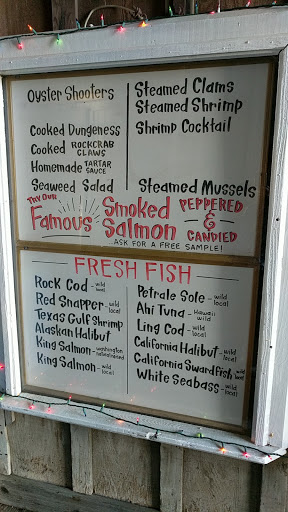 Oyster Shooters
Cooked Dungeness
Cooked ROCKCRAB CLAWS
Homemade TARTAR SAUCE
Seaweed Salad
Steamed Clams
Steamed Shrimp
Shrimp Cocktail
Steamed Mussels
TRY OUR
Famous Smoked Salmon
PEPPERED & CANDIED
ASK FOR A FREE SAMPLE!
FRESH FISH
Rock Cod - wild local
Red Snapper - wild local
Texas Gulf Shrimp
Alaskan Halibut
King Salmon - washington
King Salmon - wild local
Petrale Sole - wild local
Ahi Tuna - Hawaii wild
Ling Cod - wild local
California Halibut - wild local
California Swordfish wild local
White Seabass - wild local